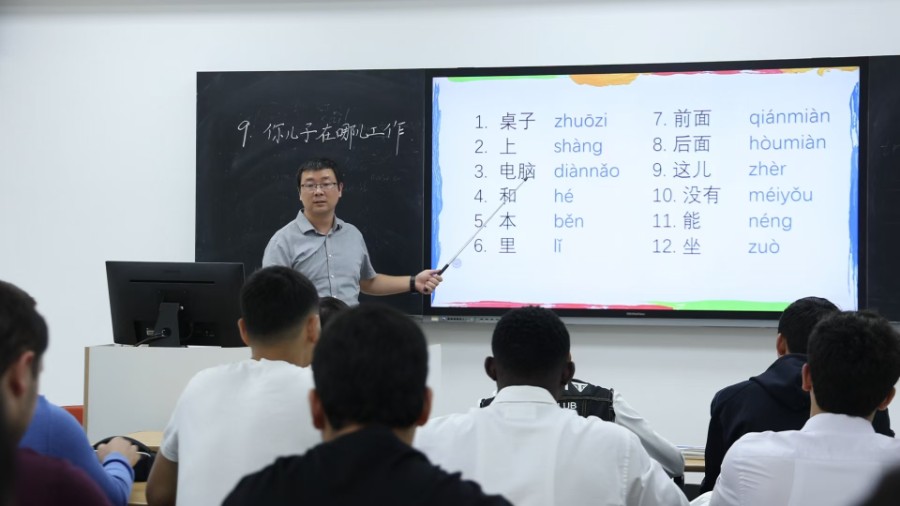 9. 你儿子在哪儿工作
1. 桌子 zhuōzi
2. 上 shàng
3. 电脑 diànnǎo
4. 和 hé
5. 本 běn
6. 里 lǐ
7. 前面 qiánmiàn
8. 后面 hòumiàn
9. 这儿 zhèr
10. 没有 méiyǒu
11. 能 néng
12. 坐 zuò
CLUB